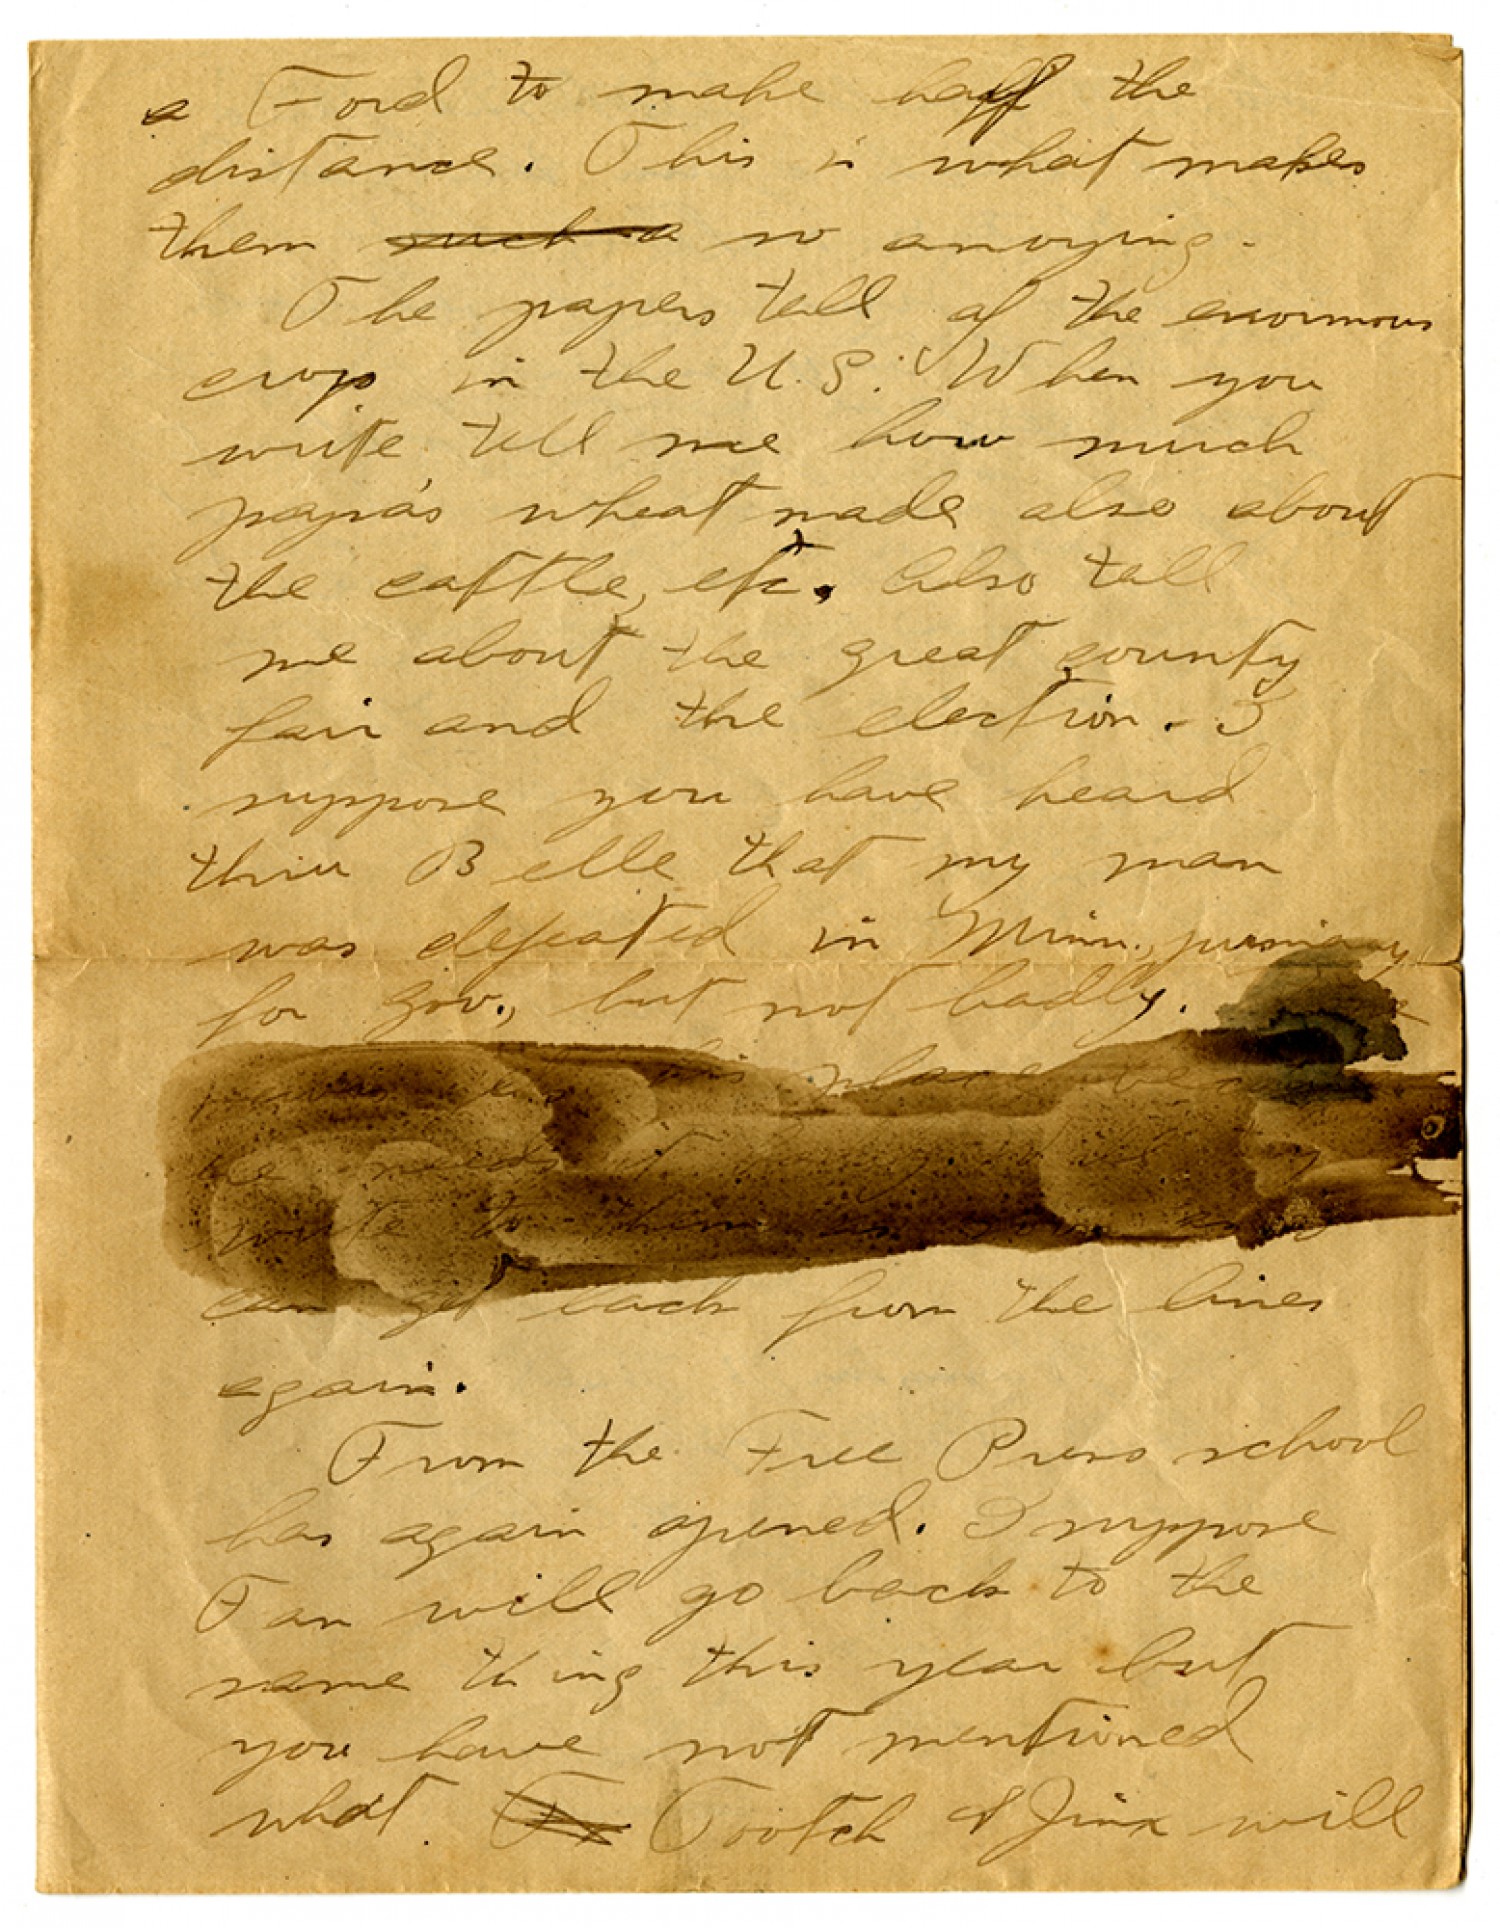 a Ford to make half the
distance. This is what makes
them such a so annoying.
The papers tell of the enormous
crop in the U.S. When you
write tell me how much
papa's wheat made also about
the cattle, etc. Also tell
me about the great county
fair and the election. I
suppose you have heard
thru Belle that my man
was defeated in Minn., primary
for Gov., but not badly.
his place
he needs it
write to him as soon as
can get back from the lines
again.
From the Free Press school
has again opened. I suppose
Fan will go back to the
same thing this year but
you have not mentioned
what Tootch & Jinx will